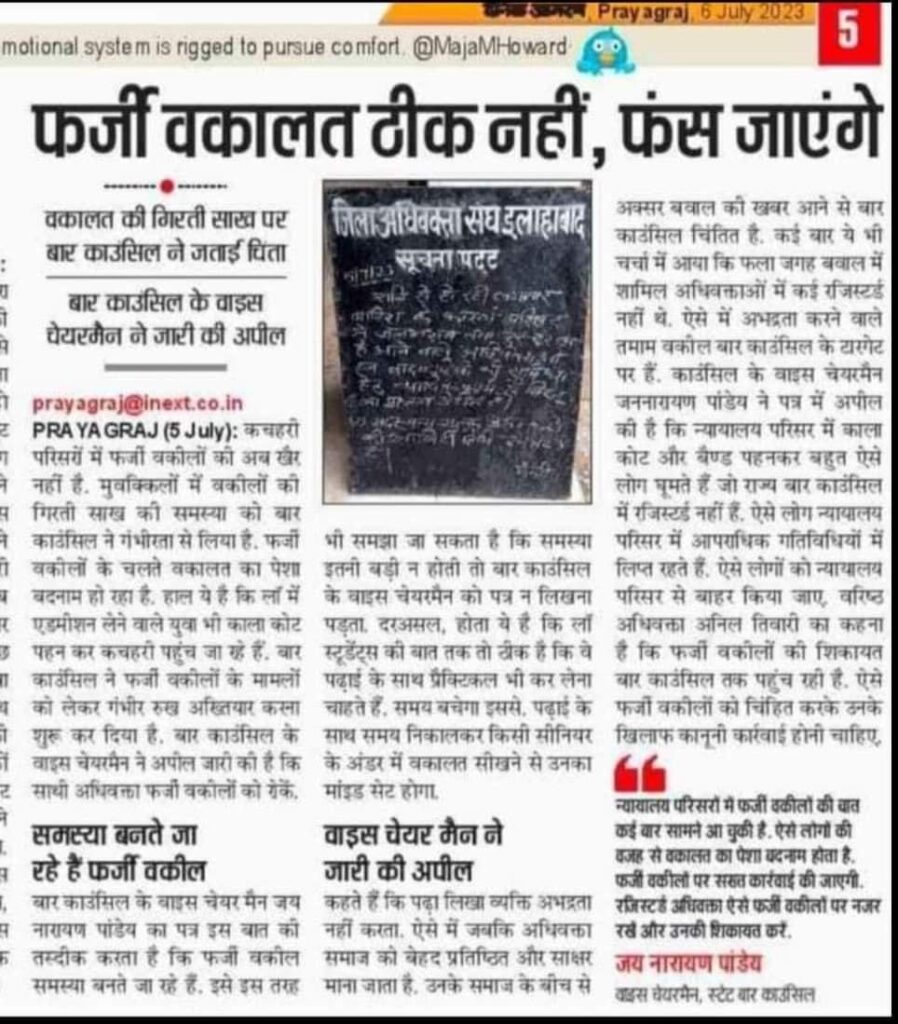 Prayagraj, 6 July 2023
5
motional system is rigged to pursue comfort. @MajaMHoward
फर्जी वकालत ठीक नहीं, फंस जाएंगे
वकालत की गिरती साख पर
बार काउंसिल ने जताई चिंता
बार काउंसिल के वाइस
चेयरमैन ने जारी की अपील
prayagraj@inext.co.in
PRAYAGRAJ (5 July): कचहरी
परिसरों में फर्जी वकीलों की अब खैर
नहीं है. मुवक्किलों में वकीलों की
गिरती साख की समस्या को बार
काउंसिल ने गंभीरता से लिया है. फर्जी
वकीलों के चलते वकालत का पेशा
बदनाम हो रहा है. हाल ये है कि लॉ में
एडमीशन लेने वाले युवा भी काला कोट
पहन कर कचहरी पहुंच जा रहे हैं. बार
काउंसिल ने फर्जी वकीलों के मामलों
को लेकर गंभीर रुख अख्तियार करना
शुरू कर दिया है. बार काउंसिल के
वाइस चेयरमैन ने अपील जारी की है कि
साथी अधिवक्ता फर्जी वकीलों को रोकें.
समस्या बनते जा
रहे हैं फर्जी वकील
बार काउंसिल के वाइस चेयर मैन जय
नारायण पांडेय का पत्र इस बात की
तस्दीक करता है कि फर्जी वकील
समस्या बनते जा रहे हैं. इसे इस तरह
जिला अधिवक्ता संघ इलाहाबाद
सूचना पटट
भी समझा जा सकता है कि समस्या
इतनी बड़ी न होती तो बार काउंसिल
के वाइस चेयरमैन को पत्र न लिखना
पड़ता. दरअसल, होता ये है कि लॉ
स्टूडेंट्स की बात तक तो ठीक है कि वे
पढ़ाई के साथ प्रैक्टिकल भी कर लेना
चाहते हैं. समय बचेगा इससे. पढ़ाई के
साथ समय निकालकर किसी सीनियर
के अंडर में वकालत सीखने से उनका
माइंड सेट होगा.
वाइस चेयर मैन ने
जारी की अपील
कहते हैं कि पढ़ा लिखा व्यक्ति अभद्रता
नहीं करता. ऐसे में जबकि अधिवक्ता
समाज को बेहद प्रतिष्ठित और साक्षर
माना जाता है. उनके समाज के बीच से
अक्सर बवाल की खबर आने से बार
काउंसिल चिंतित है. कई बार ये भी
चर्चा में आया कि फला जगह बवाल में
शामिल अधिवक्ताओं में कई रजिस्टर्ड
नहीं थे. ऐसे में अभद्रता करने वाले
तमाम वकील बार काउंसिल के टारगेट
पर हैं. काउंसिल के वाइस चेयरमैन
जननारायण पांडेय ने पत्र में अपील
की है कि न्यायालय परिसर में काला
कोट और बैण्ड पहनकर बहुत ऐसे
लोग घूमते हैं जो राज्य बार काउंसिल
में रजिस्टर्ड नहीं हैं. ऐसे लोग न्यायालय
परिसर में आपराधिक गतिविधियों में
लिप्त रहते हैं. ऐसे लोगों को न्यायालय
परिसर से बाहर किया जाए. वरिष्ठ
अधिवक्ता अनिल तिवारी का कहना
है कि फर्जी वकीलों की शिकायत
बार काउंसिल तक पहुंच रही है. ऐसे
फर्जी वकीलों को चिंहित करके उनके
खिलाफ कानूनी कार्रवाई होनी चाहिए.
न्यायालय परिसरों में फर्जी वकीलों की बात
कई बार सामने आ चुकी है. ऐसे लोगों की
वजह से वकालत का पेशा बदनाम होता है.
फर्जी वकीलों पर सख्त कार्रवाई की जाएगी.
रजिस्टर्ड अधिवक्ता ऐसे फर्जी वकीलों पर नजर
रखें और उनकी शिकायत करें.
जय नारायण पांडेय
वाइस चेयरमैन, स्टेट बार काउंसिल